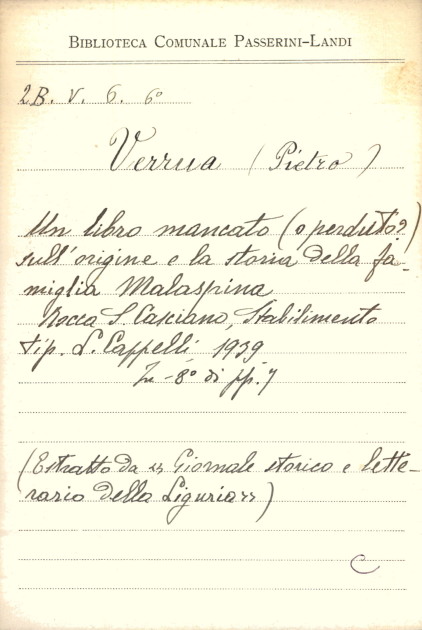 BIBLIOTECA COMUNALE PASSERINI-LANDI
2B. V. 6. 6°
Verrua (Pietro)
Un libro mancato (o perduto?)
sull'origine e la storia della fa-
miglia Malaspina
Rocca S. Casciano, Stabilimento
tip. L. Cappelli 1939
In-8° di pp. 7
(Estratto da "Giornale storico e lette-
rario della Liguria")
C